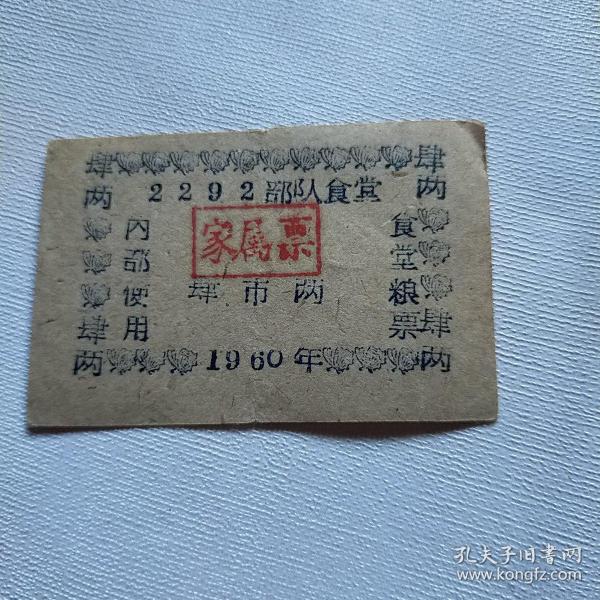 肆两
肆两
2292部队食堂
家属票
内部使用
食堂粮票
肆市两
肆两
肆两
1960年
孔夫子旧书网
www.kongfz.com